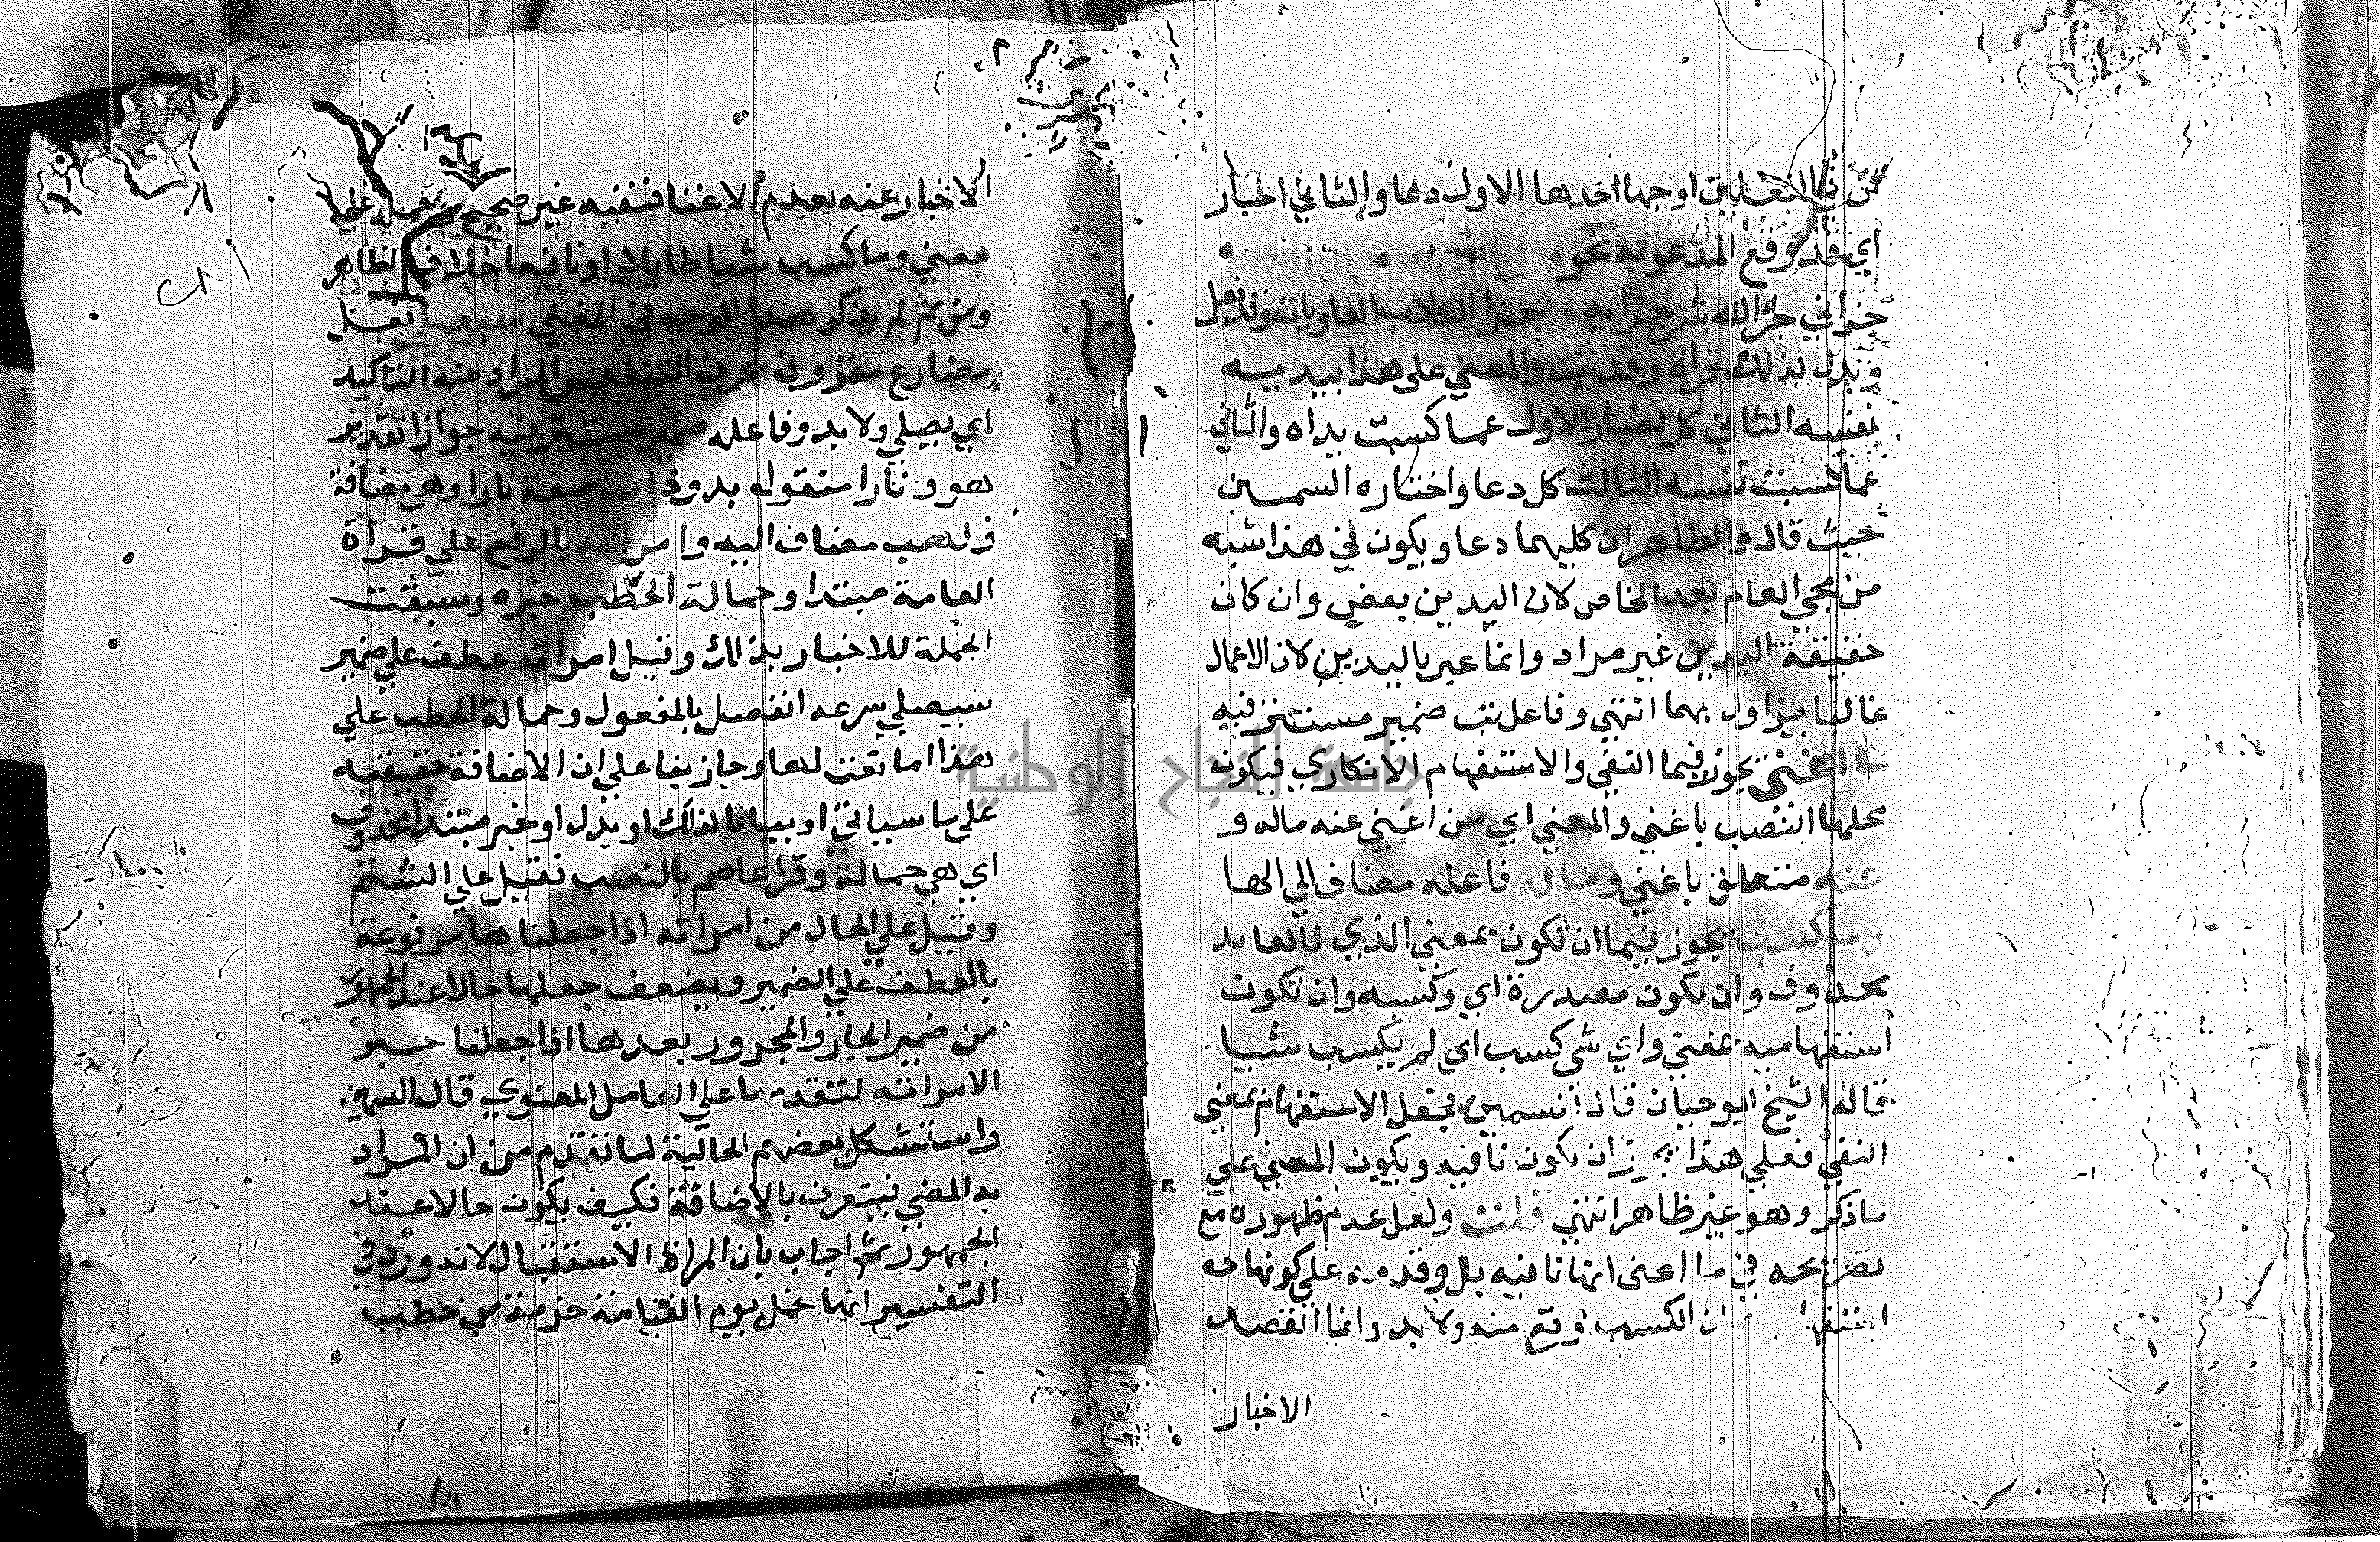 الفعلين اوجها احدها الاول دعا والثاني اخبار
اي قد وقع المدعو به نحو
جزاني جزاه الله شر جزايه جزا الكلاب العاويات وقد فعل
ويدل لذلك قراة وقد تب والمعني على هذا بيديه
نفسه الثاني كل اخبار الاول عما كسبت يداه والثاني
عما كسبت نفسه الثالث كل دعا واختاره السمين
حيث قال والظاهر ان كليهما دعا ويكون في هذا شبه
من مجي العام بعد الخاص لان اليدين بعض وان كان
حقيقة اليدين غير مراد وانما عبر باليدين لان الاعمال
غالبا تزاول بهما انتهي وفاعل تب ضمير مستتر فيه
ما اغنى يجوز فيما النفي والاستفهام الانكاري فيكون
محلها النصب باغني والمعني اي من اغني عنه ماله و
عنه متعلق باغني وماله فاعله مضاف الي الها
وما كسب يجوز فيما ان تكون بمعني الذي فالعايد
محذوف وان تكون مصدرية اي وكسبه وان تكون
استفهامية بمعني واي شي كسب اي لم يكسب شيا
قاله الشيخ ابو حيان قال السمين فجعل الاستفهام بمعني
النفي فعلي هذا يجوز ان تكون نافية ويكون المعني علي
ما ذكر وهو غير ظاهر انتهي قلت ولعل عدم ظهوره مع
تصريحه في ما اغنى انها نافيه بل وقدمه علي كونها
ان الكسب وقع منه ولا بد وانما القصد
الاخبار
الاخبار عنه بعدم الاغنا فنفيه غير صحيح
معني وما كسب شيا طايلا او نافعا خلاف الظاهر
ومن ثم لم يذكر هذا الوجه في المغني سيصلى فعل
مضارع مقرون بحرف التنفيس المراد منه التاكيد
اي يصلي ولا بد وفاعله ضمير مستتر فيه جوازا تقديره
هو و نارا مفعوله بدون ذات صفة نارا وهي مضافة
ولهب مضاف اليه وامراته بالرفع علي قراة
العامة مبتدا وحمالة الحطب خبره وسيقت
الجملة للاخبار بذلك وقيل امراته عطف علي ضمير
سيصلي سرعه الفصل بالمفعول وحمالة الحطب علي
هذا اما نعت لها وجاز بنا علي ان الاضافة حقيقيه
علي ما سياتي او بيانا لذلك او بدل او خبر مبتدا محذوف
اي هي حمالة وقرا عاصم بالنصب فقيل علي الشتم
وقيل علي الحال من امراته اذا جعلناها مرفوعة
بالعطف علي الضمير ويضعف جعلها حالا عند الجمهور
من ضمير الجار والمجرور بعدها اذا جعلنا خبر
الامراته لتقدمها علي العامل المعنوي قال السمين
واستشكل بعضهم الحالية لما تقدم من ان المراد
به المضي فيتعرف بالاضافة فكيف يكون حالا عند
الجمهور ثم اجاب بان المراد الاستقبال لانه ورد في
التفسير انها تحمل يوم القيامة حزمة من حطب
جامعة النجاح الوطنية